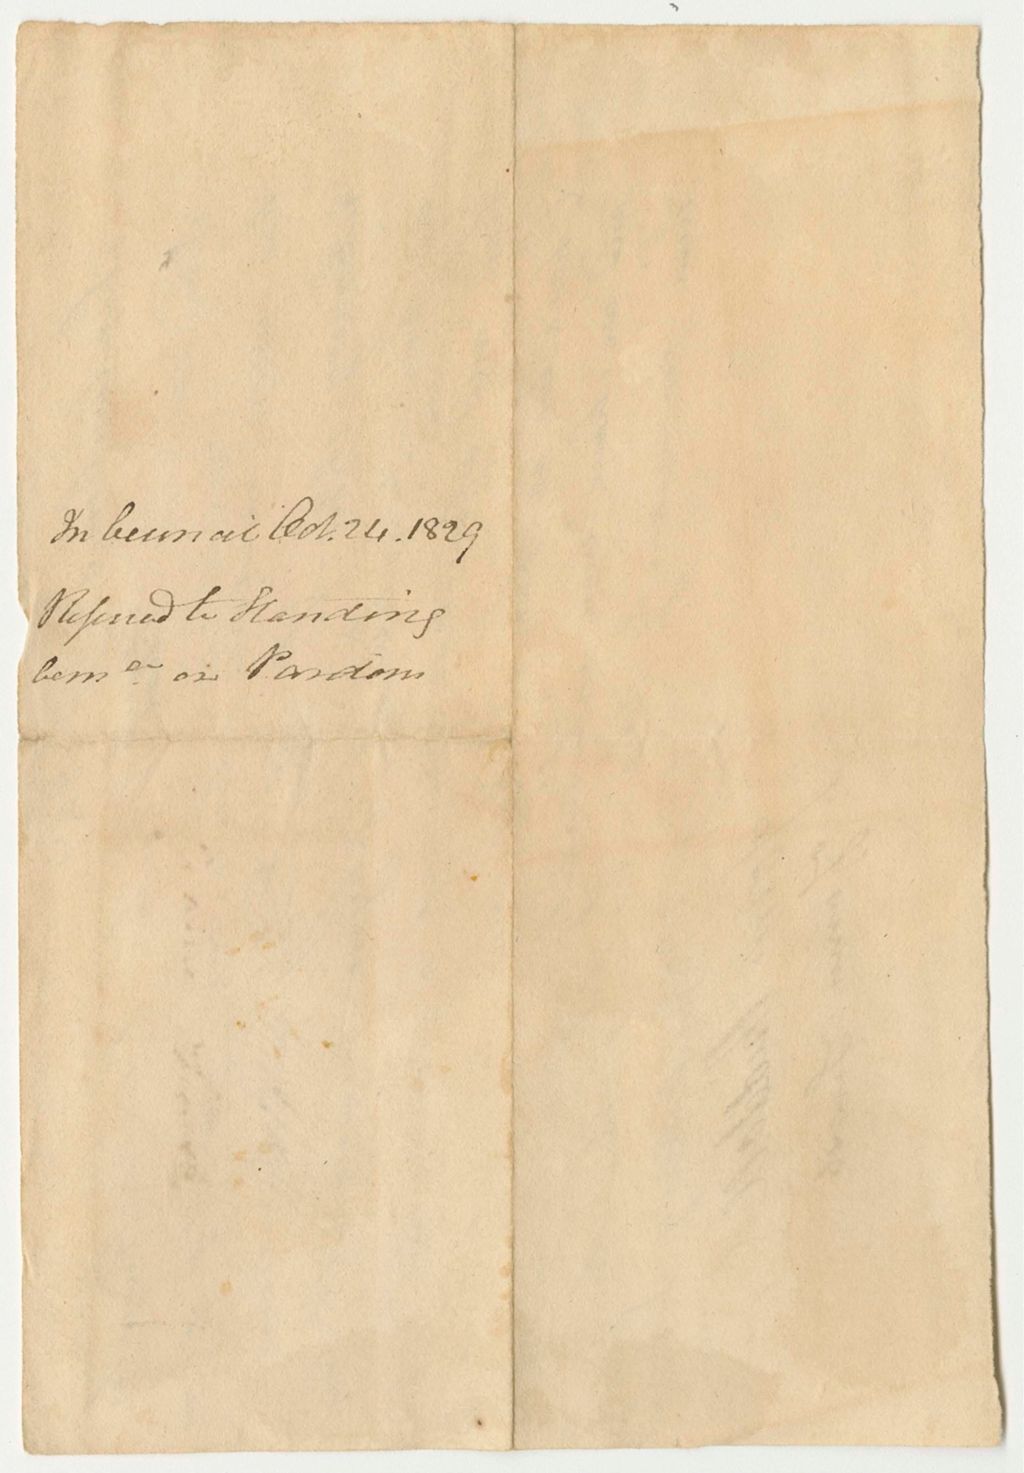 In Council Oct. 24. 1829
Referred to Standing
Comee on Pardons